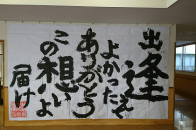 出逢えて
よかった
ありがとう
この想いよ
届け